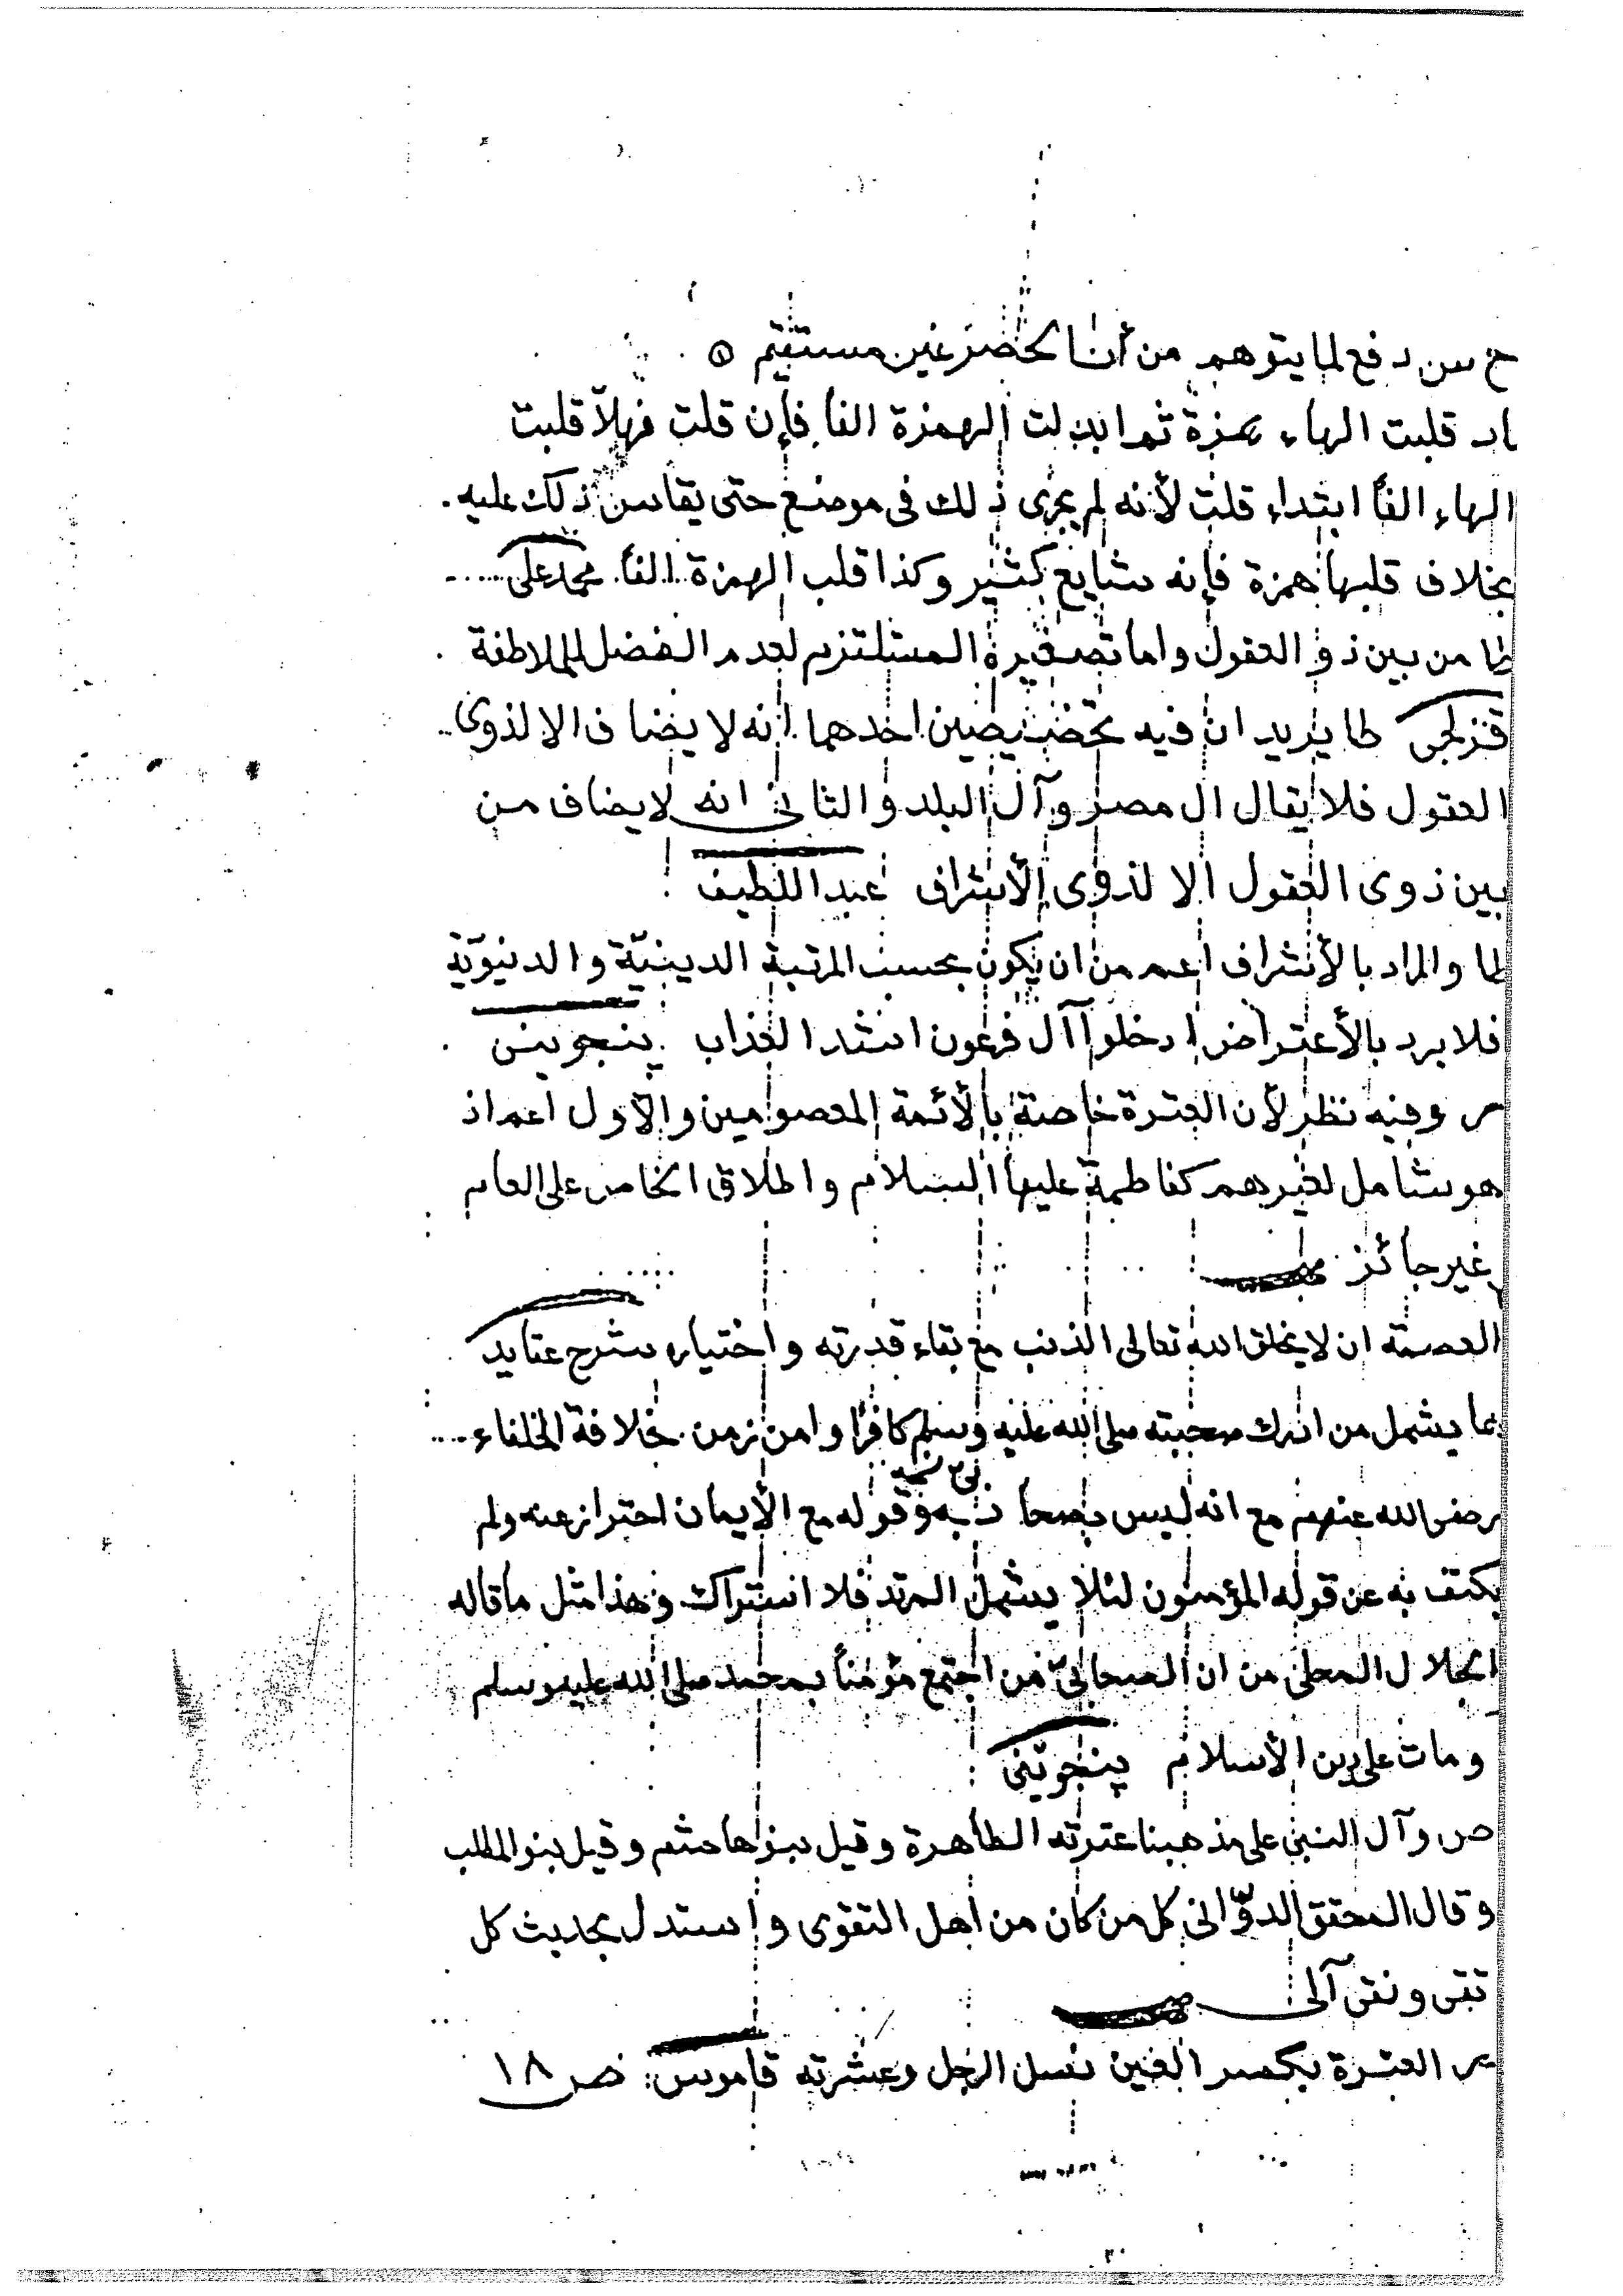 خ س دفع لما يتوهم من أن الحضر غير مستقيم
اد قلبت الهاء همزة ثم ابدلت الهمزة الفا فإن قلت فهلّا قلبت
الهاء الفاً ابتداء قلت لأنه لم يجرى ذلك فى موضع حتى يقاس ذلك عليه.
بخلاف قلبها همزة فإنه شايع كثير وكذا قلب الهمزة الفاً. محمد على
طا من بين ذو العقول واما تصغيرة المستلتزم لعدم الفضل للملاطفة
قزلجى طا يريد ان فيه تخضيصين احدهما انه لا يضاف الا لذوى
العقول فلا يقال ال مصر وآل البلد والثانى انه لا يضاف من
بين ذوى العقول الا لذوى الأشراف عبد اللطيف
طا والمراد بالأشراف اعم من ان يكون بحسب المرتبة الدينيّة والدنيويّة
فلا يرد بالأعتراض ادخلوا آل فرعون اشد العذاب ينجوينى
س وفيه نظر لأن العترة خاصة بالأئمة المعصومين والأول اعم اذ
هو شامل لغيرهم كفاطمة عليها السلام واطلاق الخاص على العام
غير جائز
العصمة ان لا يخلق الله تعالى الذنب مع بقاء قدرته واختياره شرح عقايد
انما يشمل من ادرك صحبته صلى الله عليه وسلم كافرًا وامن زمن خلافة الخلفاء
رضى الله عنهم مع انه ليس بصحابه وقوله مع الأيمان احتراز عنه ولم
يكتف به عن قوله المؤمنون لئلا يشمل المرتد فلا استراك وهذا مثل ما قاله
الجلال المحلى من ان الصحابىّ من اجتمع مؤمناً بمحمد صلى الله عليه وسلم
ومات على دين الأسلام پينجوينى
ص وآل النبى على مذهبنا عترته الطاهرة وقيل بنو هاشم وقيل بنو المطلب
وقال المحقق الدوّانى كل من كان من اهل التقوى واستدل بحديث كل
تقى ونقى آلى
س العترة بكسر العين نسل الرجل وعشرته قاموس: ص ١٨